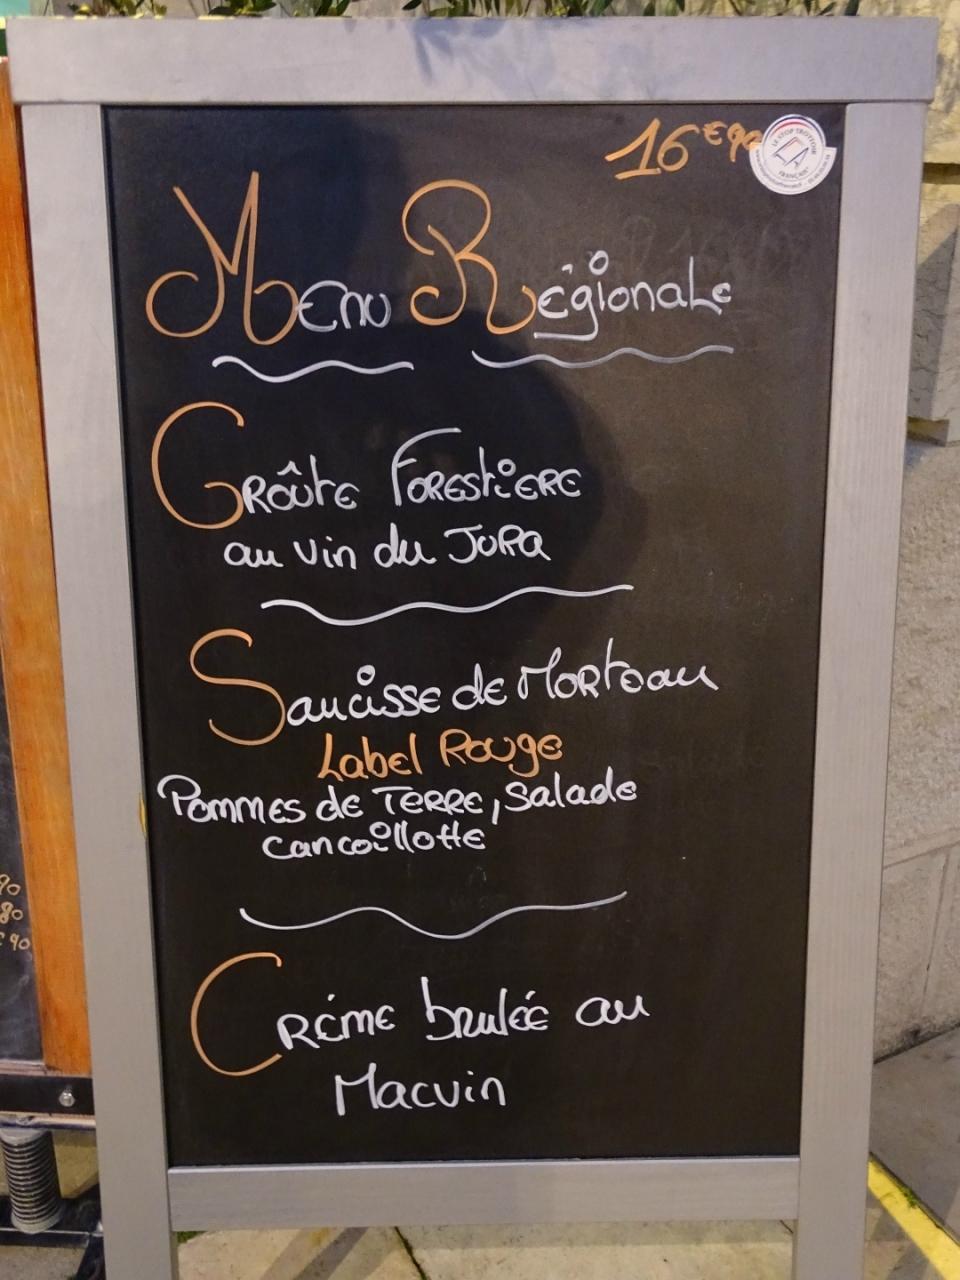 16€90
LE STOP TROTTOIR
FRANÇAIS
Menu Régionale
Croûte Forestière
au vin du Jura
Saucisse de Morteau
Label Rouge
Pommes de Terre, Salade
cancoillotte
Créme brulée au
Macvin
90
90
€90